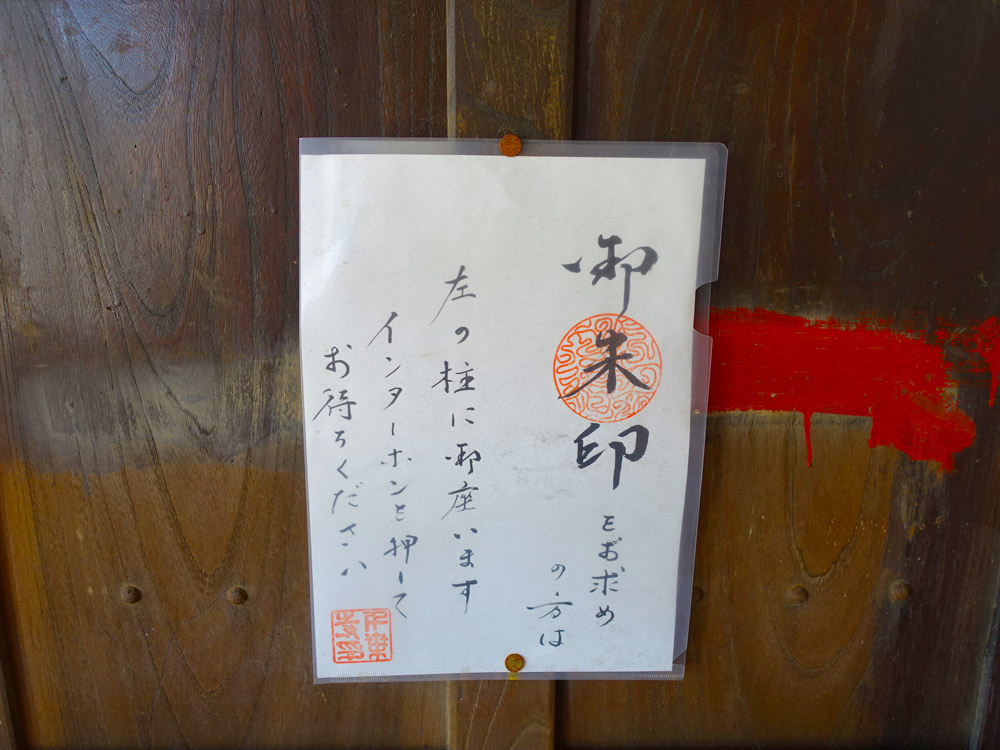 御朱印をお求め
の方は
左の柱に御座います
インターホンを押して
お待ちください